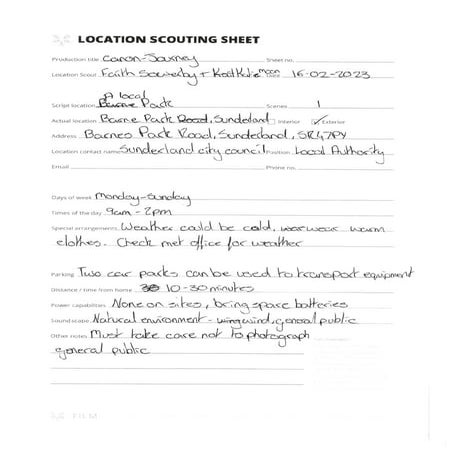 LOCATION SCOUTING SHEET
Production title Canon-Journey Sheet no.
Location Scout Faith Sowerby + Date 16-02-2023
A local
Script location Park Scenes 1
Actual location Barne Park Road, Sunderland Interior ✓ Exterior
Address Barnes Park Road, Sunderland, SR4 7PY
Location contact name Sunderland city council Position Local Authority
Email Phone no.
Days of week Monday-Sunday
Times of the day 9am - 2pm
Special arrangements Weather could be cold, wear warm
clothes. Check met office for weather
Parking Two car parks can be used to transport equipment
Distance / time from home 10-30 minutes
Power capabilities None on sites, bring spare batteries
Soundscape Natural environment - wind, general public
Other notes Must take care not to photograph
general public